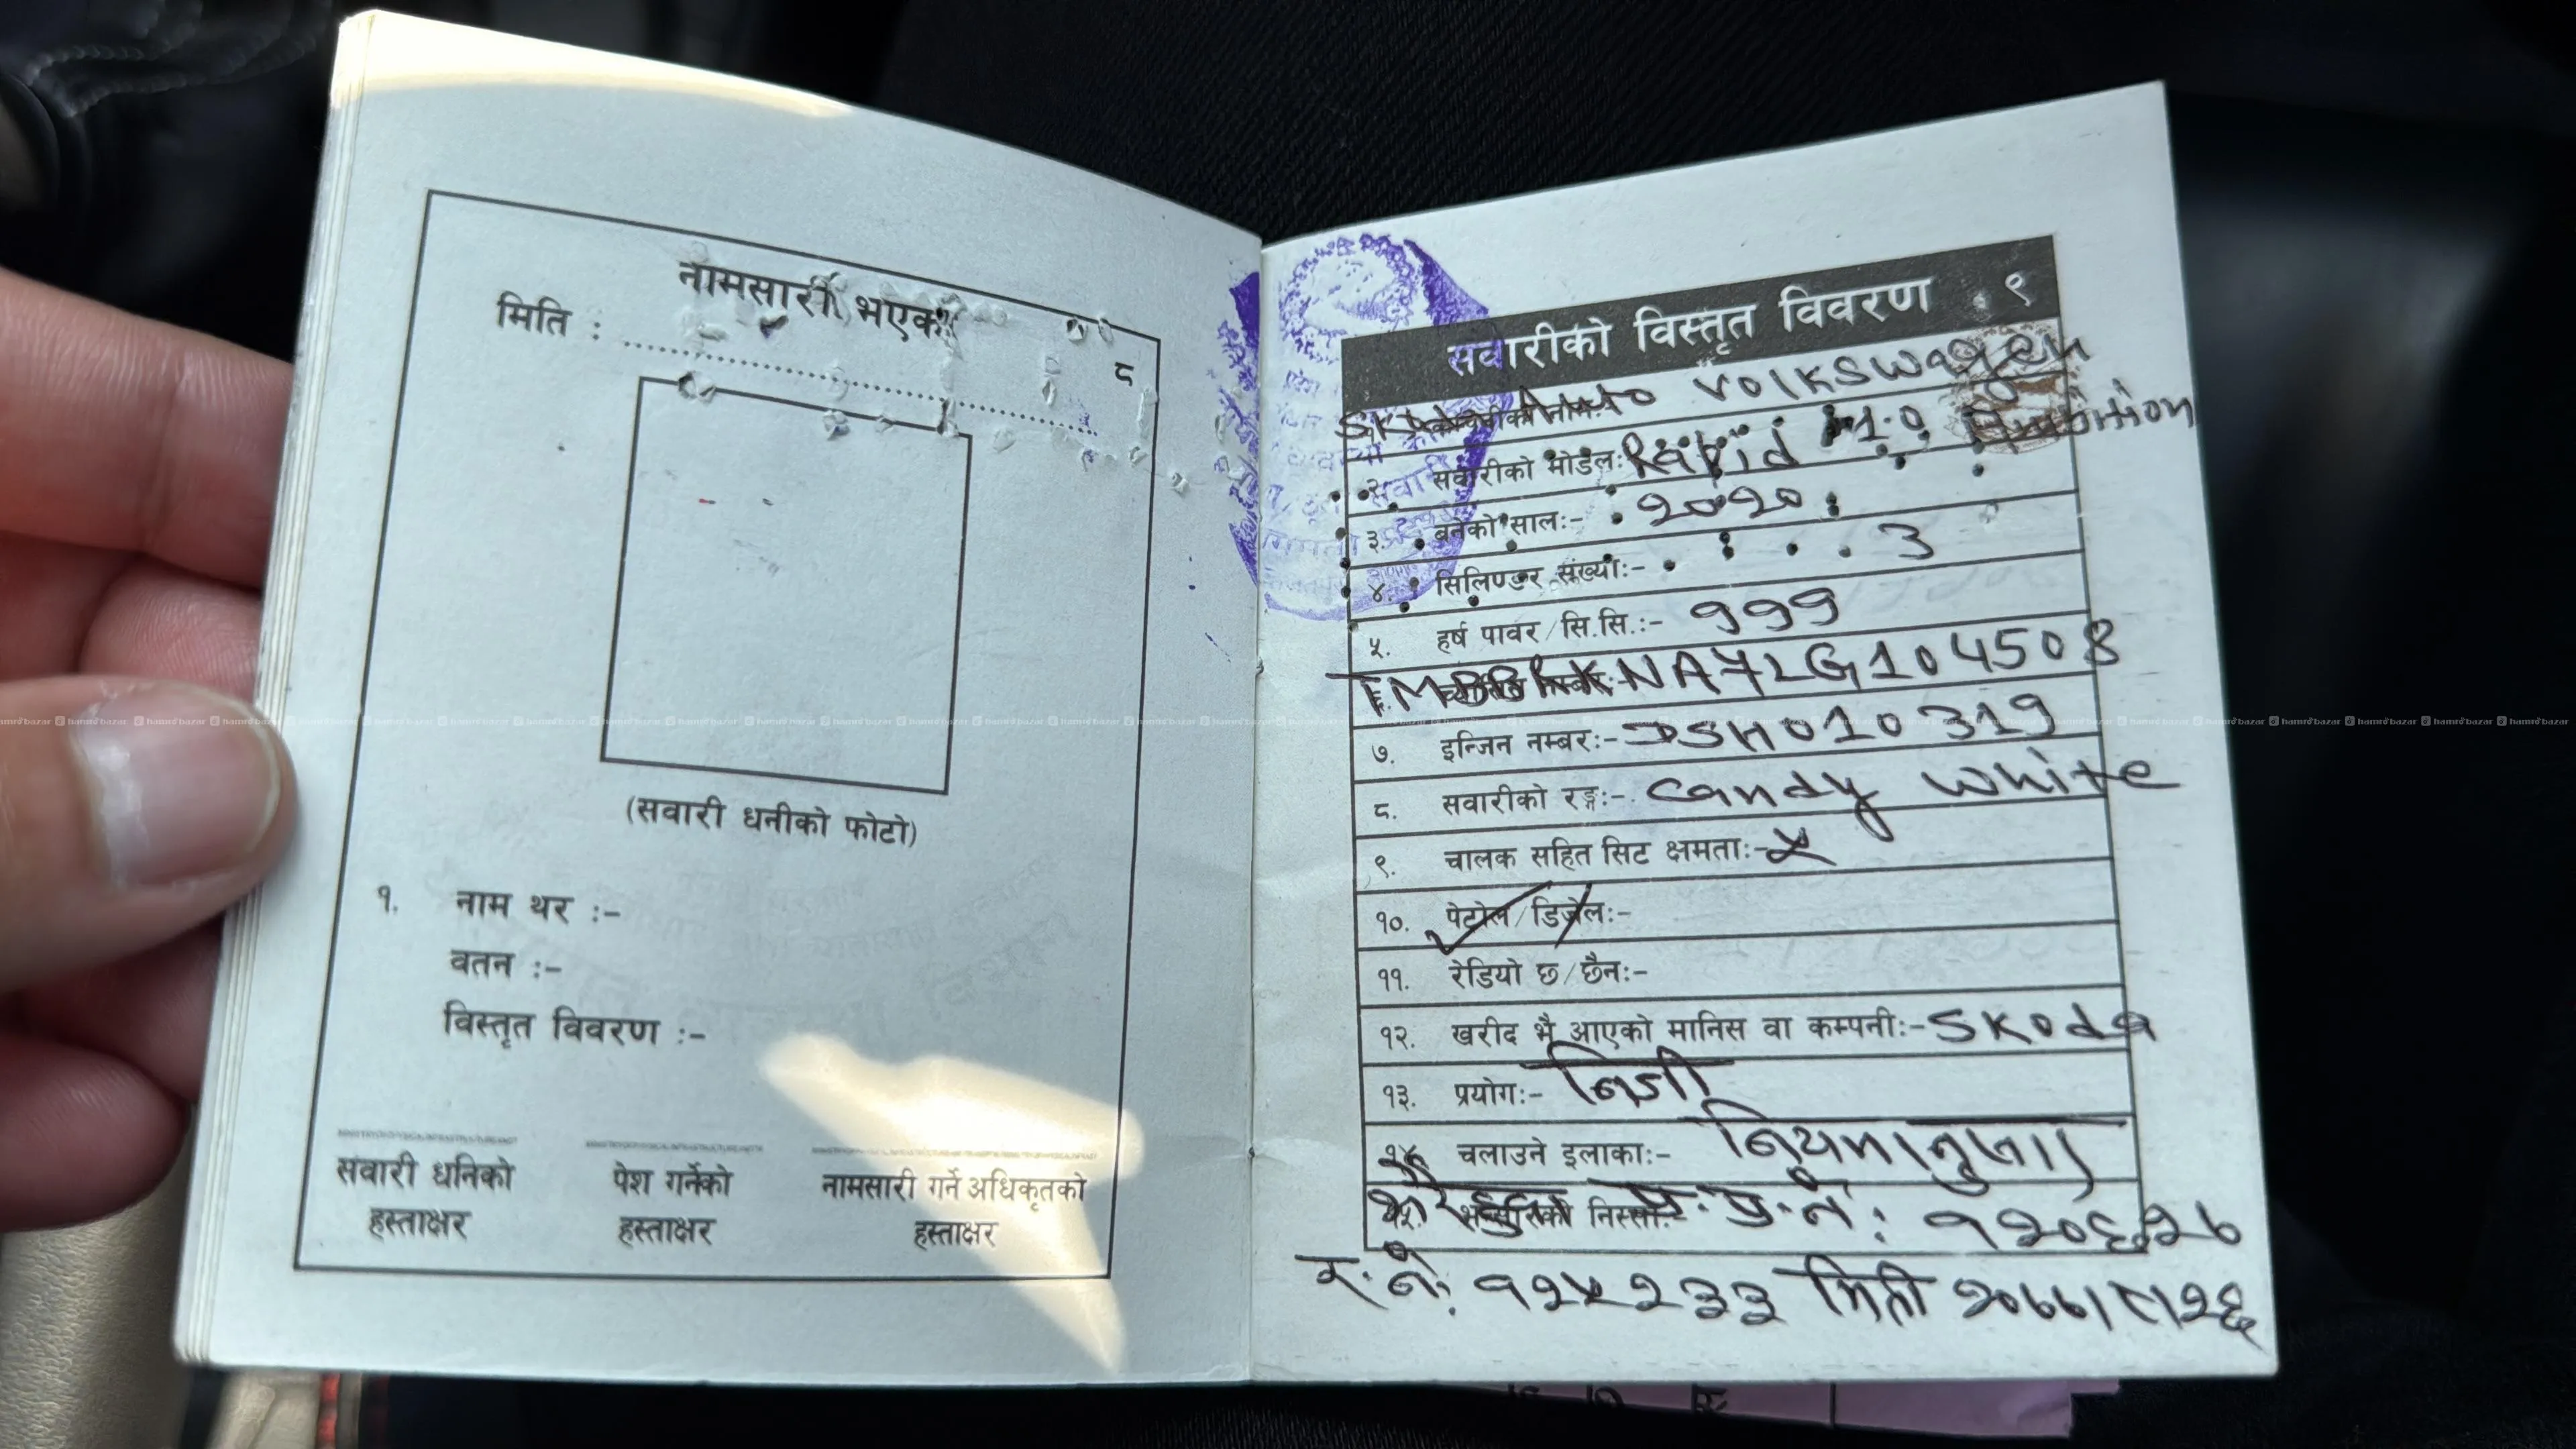 नामसारी भएको
मिति :
८
(सवारी धनीको फोटो)
१. नाम थर :-
वतन :-
विस्तृत विवरण :-
सवारी धनिको हस्ताक्षर
पेश गर्नेको हस्ताक्षर
नामसारी गर्ने अधिकृतको हस्ताक्षर
सवारीको विस्तृत विवरण ९
Auto Volkswagen
२. सवारीको मोडेल:- Rapid 1.0 Ambition
३. बनेको साल:- २०२०
४. सिलिण्डर संख्या:- 3
५. हर्ष पावर/सि.सि.:- 999
७. इन्जिन नम्बर:- DSH010319
८. सवारीको रङ्ग:- Candy White
९. चालक सहित सिट क्षमता:- ५
१०. पेट्रोल/डिजेल:-
११. रेडियो छ/छैन:-
१२. खरीद भै आएको मानिस वा कम्पनी:- Skoda
१३. प्रयोग:- निजी
१४. चलाउने इलाका:- नियमानुसार
प्र.प.नं: १२०६३२७
र.नं: १२५२३३ मिती २०७७।८।२६
hamrobazar